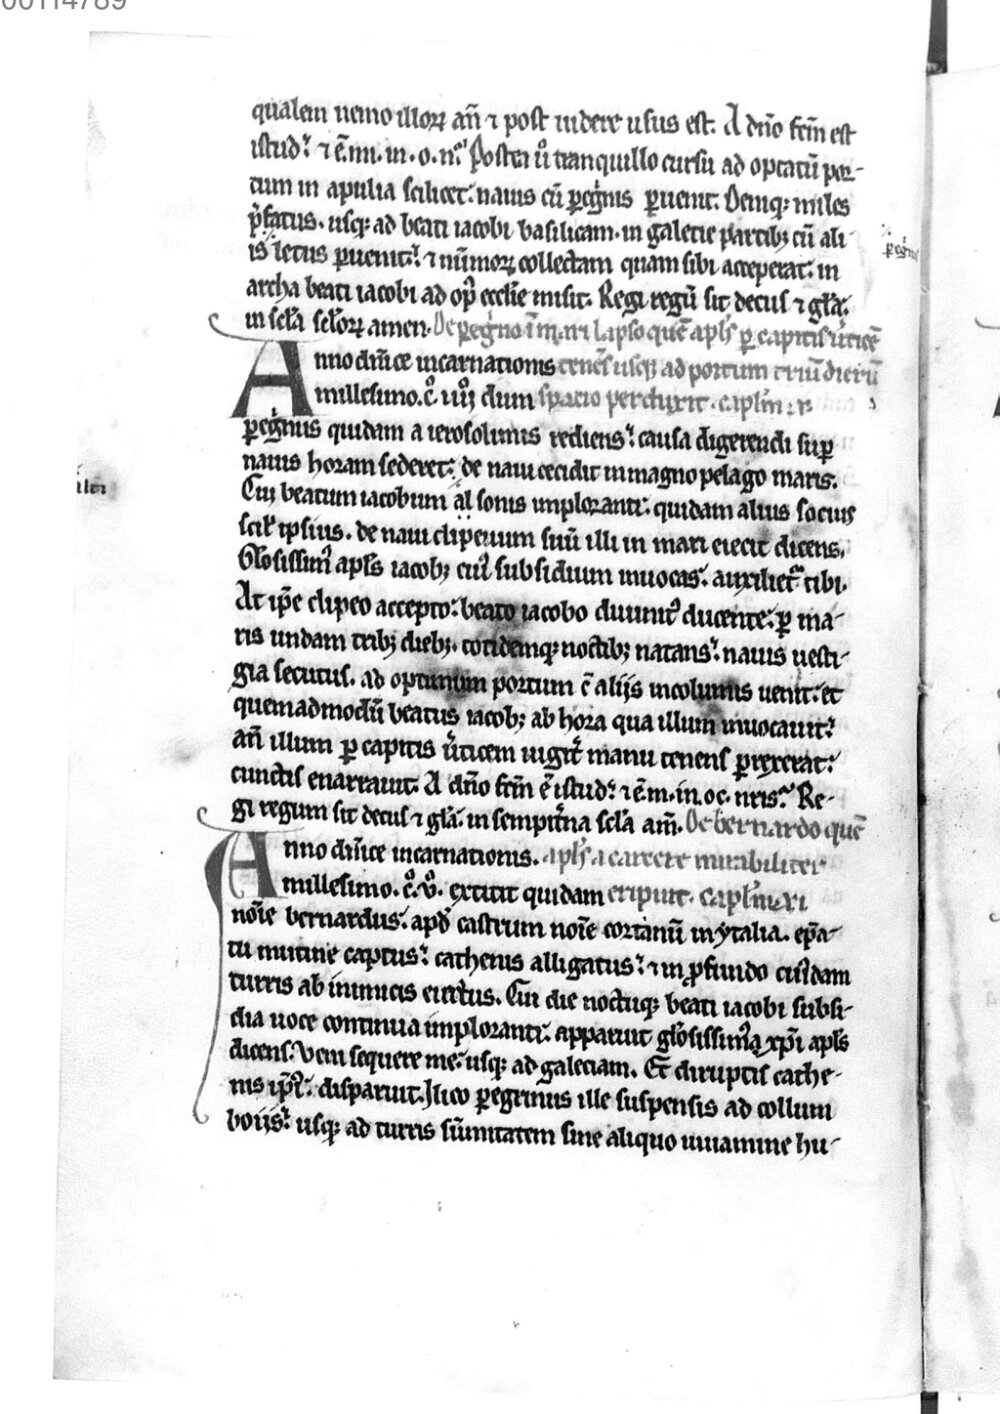 00114789
qualem nemo illoꝝ an̄ ⁊ post uidere uisus est. A dn̄o fc̄m est
istud. ⁊ ē. mi. in. o. nr̄is. Postea ū tranquillo cursu ad optatū por-
tum in apulia scilicet. nauis cū pegͥnis peruenit. Deniqꝫ miles
p̄fatus. usqꝫ ad beati iacobi basilicam. in galecie partibꝫ cū ali
is letus peruenit. ⁊ nūmoꝝ collectam quam sibi acceperat. in
archa beati iacobi ad op̄ eccl̄ie misit. Regi regū sit decus ⁊ gl̄a.
in scl̄a scl̄oꝝ amen. De pegͥno ī mari lapso quē apl̄s p capitis ūticē
Anno dn̄ice incarnationis tenēs usqꝫ ad portum triū dierū
millesimo. c̊. iiijͦ dum spacio perduxit. capl̄m
pegͥnus quidam a ierosolimis rediens. causa digerendi sup
nauis horam sederet. de naui cecidit in magno pelago maris.
Cui beatum iacobum al sonis imploranti. quidam alius socius
scil ipsius. de naui clipeum suū illi in mari eiecit dicens.
Gl̄osissimꝰ apl̄s iacobꝫ cuiꝰ subsidium inuocas. auxilietᷣ tibi.
At ip̄e clipeo accepto. beato iacobo diuinitꝰ ducente. p ma-
ris undam tribꝫ diebꝫ. totidemqꝫ noctibꝫ natans. nauis uesti-
gia secutus. ad optimum portum c̄ alijs incolumis uenit. et
quemadmodū beatus iacobꝫ ab hora qua illum inuocauit.
an̄ illum p capitis ūticem iugit̄ manu tenens prexerat.
cunctis enarrauit. A dn̄o fc̄m ē istud. ⁊ ē. m. in. oc. nr̄is. Re-
gi regum sit decus ⁊ gl̄a. in sempit̄na scl̄a am̄. De bernardo quē
Anno dn̄ice incarnationis. apl̄s a carcere mirabiliter
millesimo. c̊. vͦ. extitit quidam eripuit. capl̄m xi
noīe bernardus. apd̄ castrum noīe cortanū in ytalia. ep̄a-
tu mutine captus. cathenis alligatus. ⁊ in p̄fundo cuiꝰdam
turris ab inimicis eiectus. Cui die noctuqꝫ beati iacobi subsi-
dia uoce continua imploranti. apparuit gl̄osissimꝰ xp̄i apl̄s
dicens. Veni sequere me. usqꝫ ad galeciam. Et diruptis cathe-
nis ip̄iꝰ. disparuit. Ilico peregrinus ille suspensis ad collum
boijs. usqꝫ ad turris sūmitatem sine aliquo iuuamine hu-